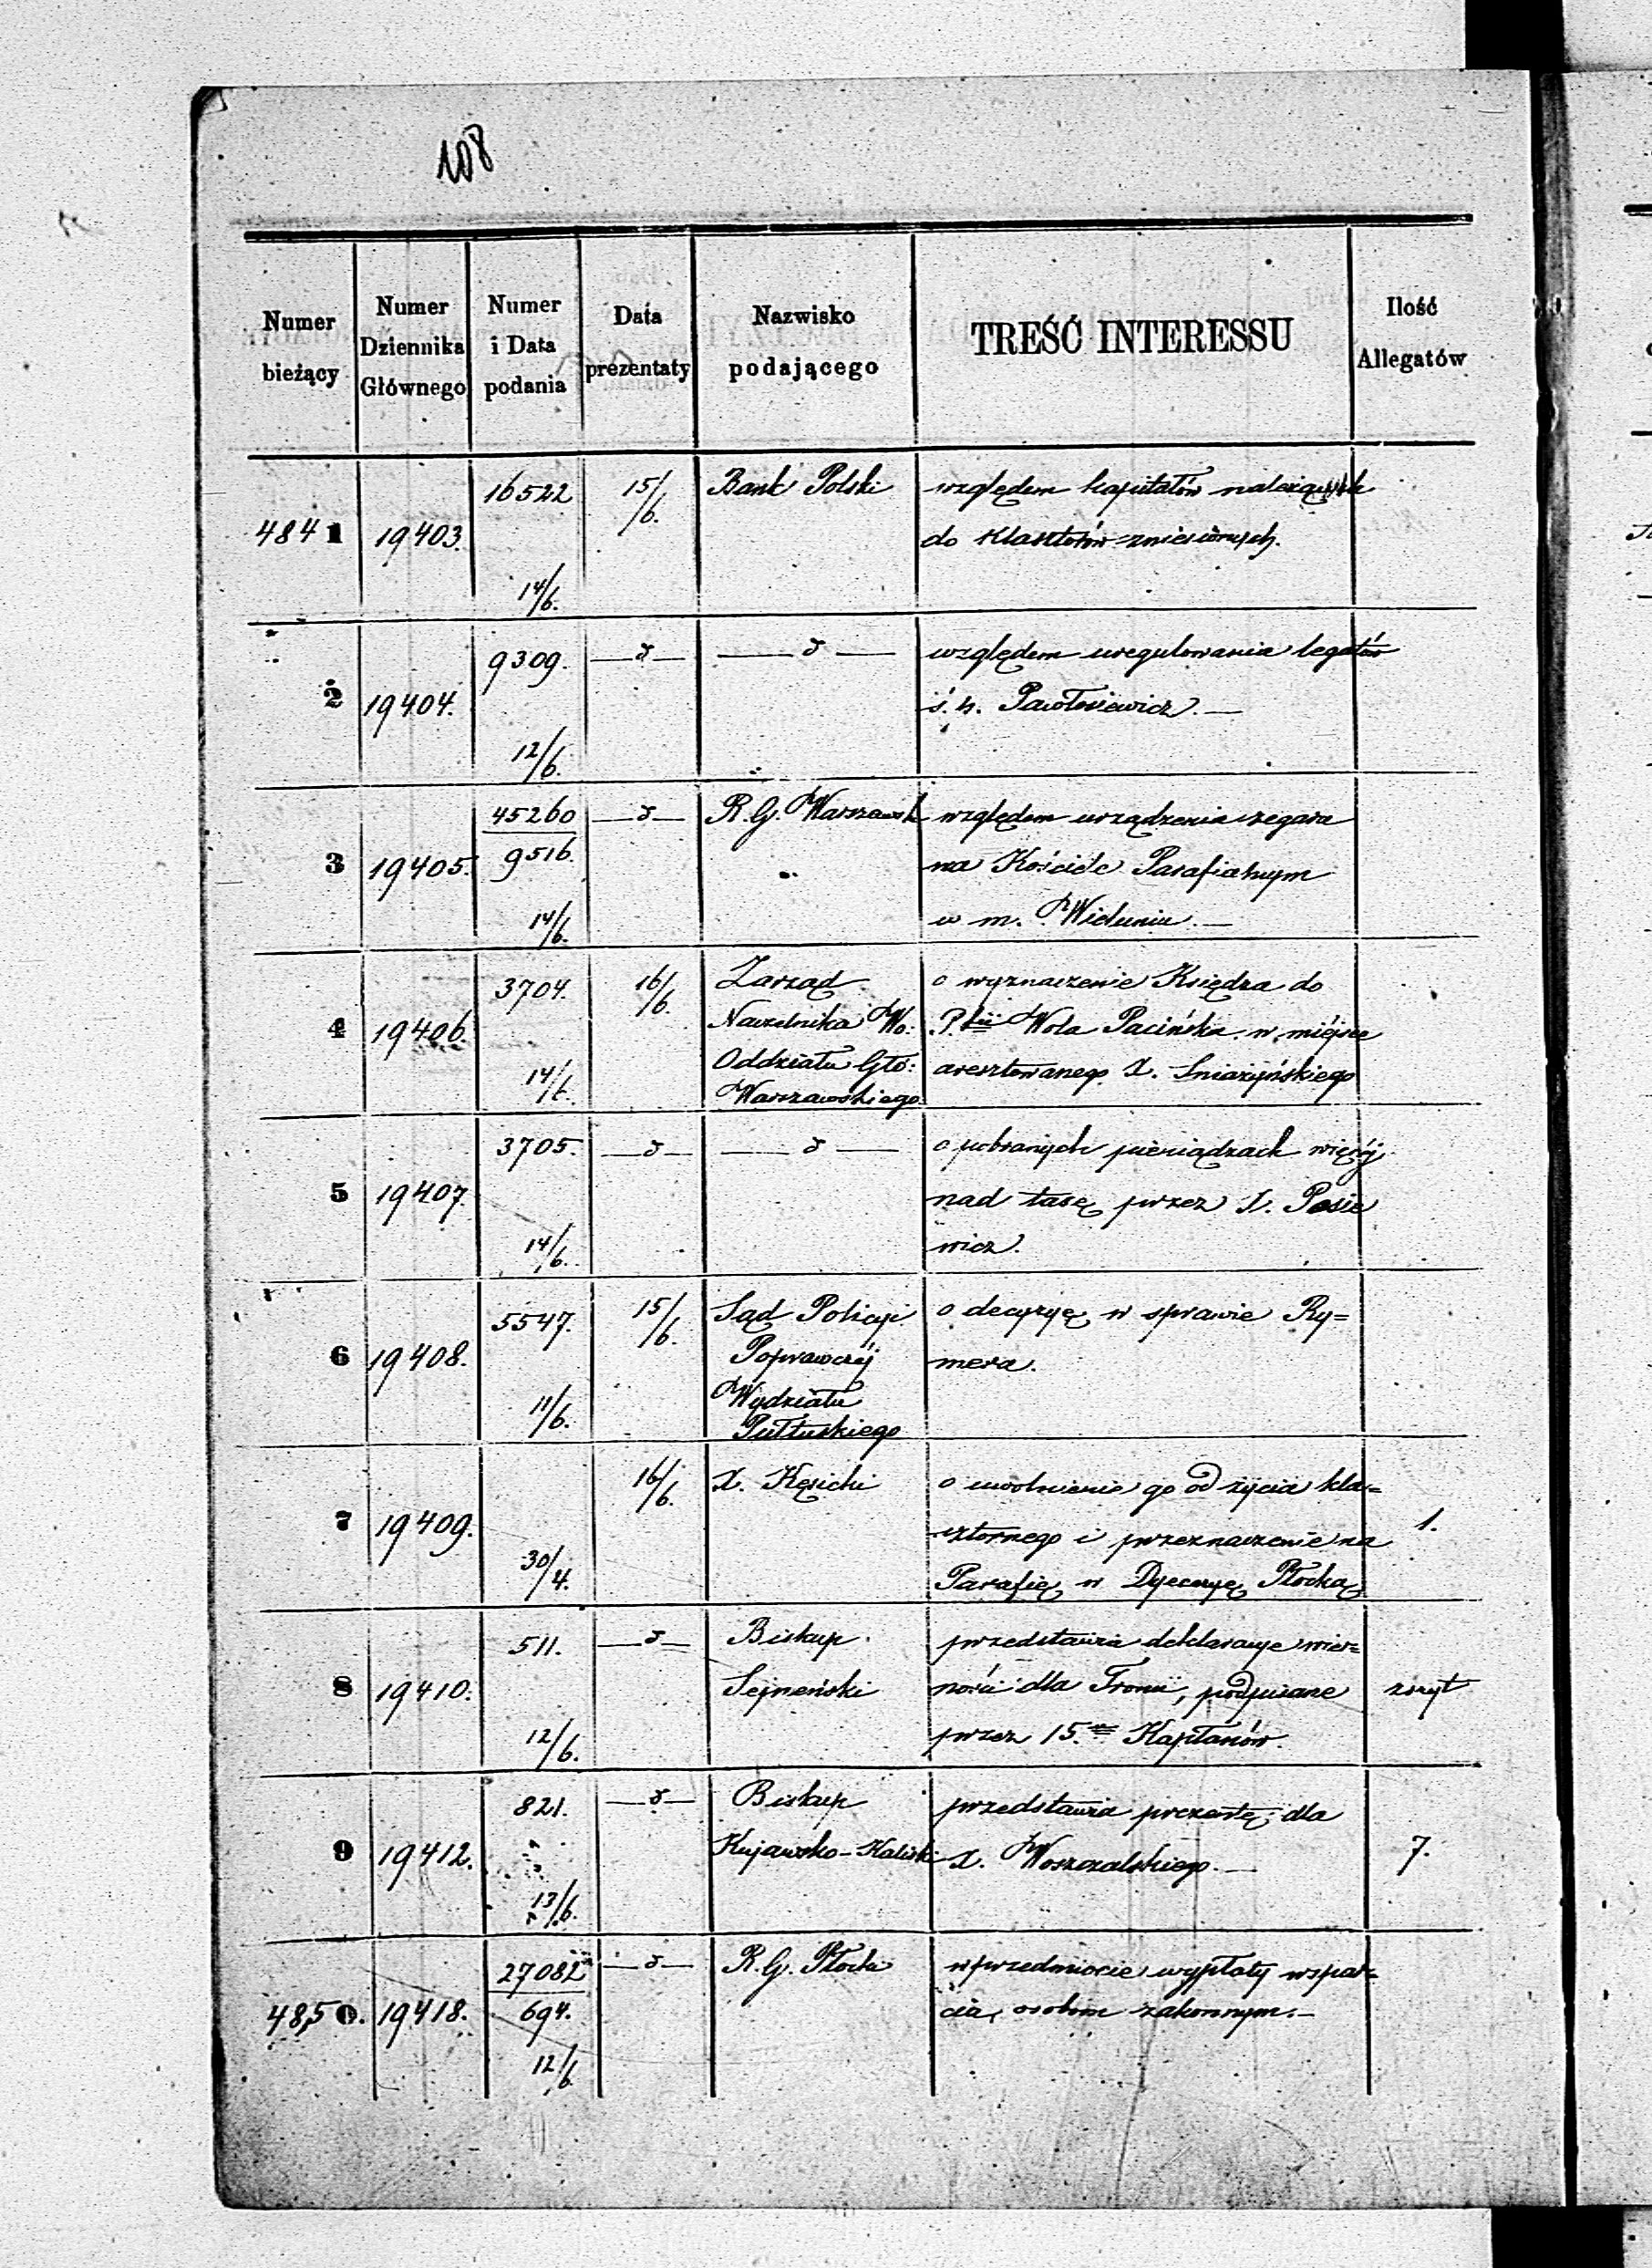 108
Numer bieżący
Numer Dziennika Głównego
Numer i Data podania
Data prezentaty
Nazwisko podającego
TREŚĆ INTERESSU
Ilość Allegatów
4841 19403. 16522 14/6. 15/6. Bank Polski
względem kapitałów należących
do Klasztorów zniesionych.
2 19404. 9309. 12/6. —d— —d—
względem uregulowania legatów
ś. p. Pawłosiewicz. —
3 19405. 45260 9516. 14/6. —d— R. G. Warszawsk
względem urządzenia zegara
na Kościele Parafialnym
w m. Wieluniu. —
4 19406. 3704. 14/6. 16/6.
Zarząd
Naczelnika Wo:
Oddziału Głó:
Warszawskiego
o wyznaczenie Księdza do
P.fii Wola Pacińska w miéjsce
aresztowanego X. Sniażyńskiego
5 19407. 3705. 14/6. —d— —d—
o pobranych pieniądzach więcéj
nad taxę przez X. Posie
wicz.
6 19408. 5547. 11/6. 15/6.
Sąd Policyi
Poprawczéj
Wydziału
Pułtuskiego
o decyzyę w sprawie Ry=
mera.
7 19409. 30/4. 16/6. X. Kęsicki
o uwolnienie go od życia kla=
sztornego i przeznaczenie na
Parafię w Dyecezyę Płocką
1.
8 19410. 511. 12/6. —d—
Biskup
Sejneński
przedstawia deklaracye wier=
ności dla Tronu, podpisane
przez 15. Kapłanów.
zszyt
9 19412. 821. 13/6. —d—
Biskup
Kujawsko-Kaliski
przedstawia prezentę dla
X. Woszczalskiego. —
7.
4850. 19418. 27082 694. 12/6. —d— R. G. Płocki
w przedmiocie wypłaty wspar=
cia osobom zakonnym. —